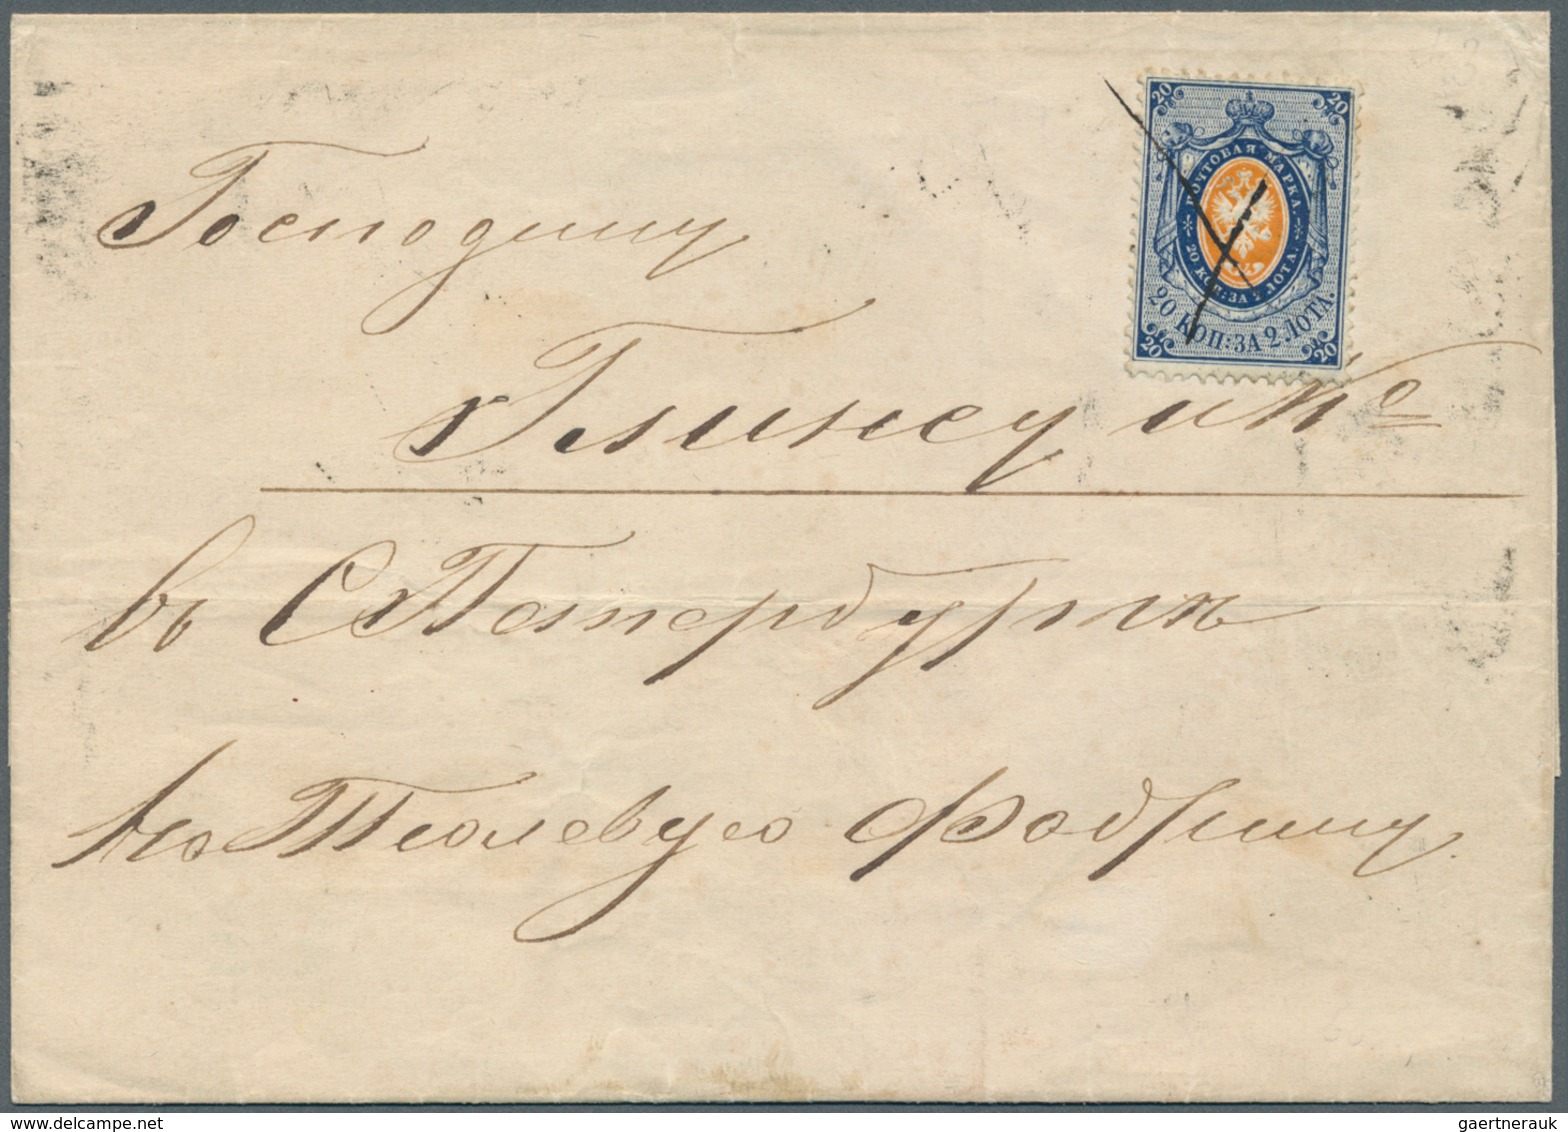 20 20
ПОЧТОВАЯ МАРКА.
20 КОП: ЗА 2 ЛОТА.
20 КОП: ЗА 2 ЛОТА.
20 20
Господину
Глинсу и Ко
въ С Петербургѣ
на Тюлевую Фабрику
gaertnerauk